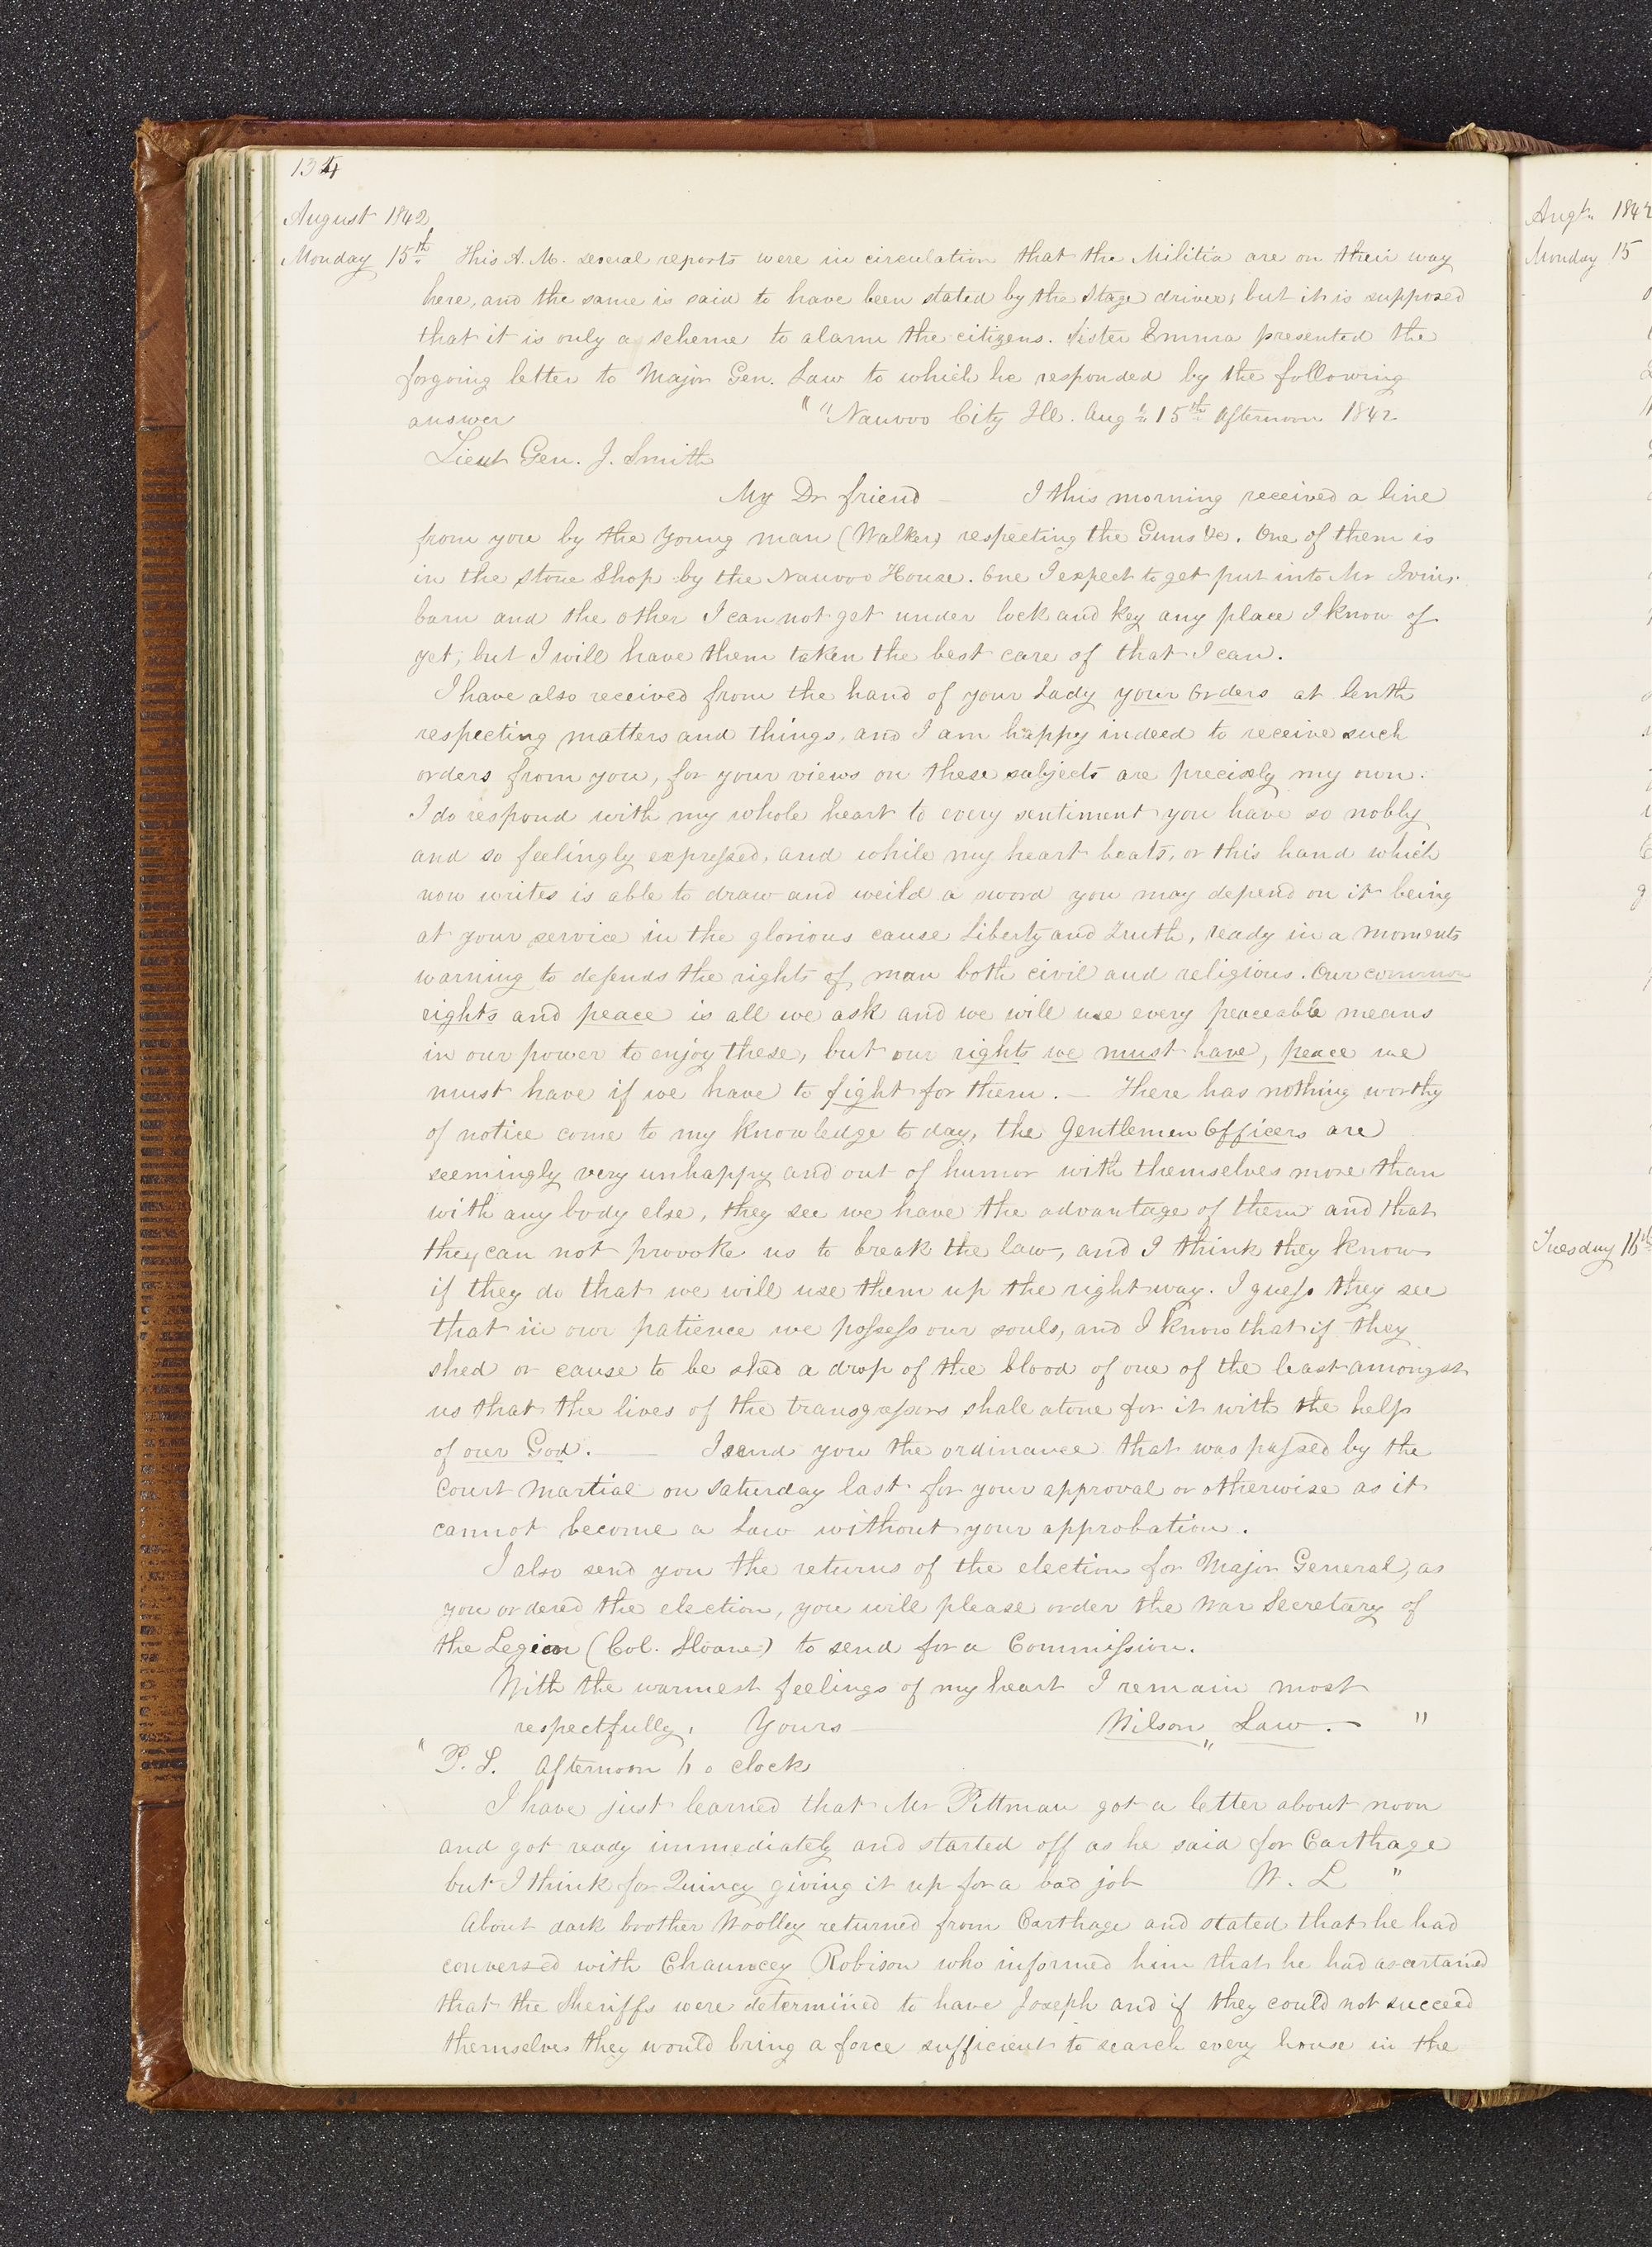 134
August 1842
Monday 15th This A.M. several reports were in circulation that the Militia are on their way
here, and the same is said to have been stated by the Stage driver, but it is supposed
that it is only a scheme to alarm the citizens. Sister Emma presented the
forgoing letter to Major Gen. Law to which he responded by the following
answer " "Nauvoo City Ill. Augt 15th Afternoon 1842
Lieut Gen. J. Smith
My Dr friend — I this morning received a line
from you by the Young man (Walker) respecting the Guns &c. One of them is
in the stone Shop by the Nauvoo House. One I expect to get put into Mr Ivins
barn and the other I can not get under lock and key any place I know of
yet, but I will have them taken the best care of that I can.
I have also received from the hand of your Lady your orders at lenth
respecting matters and things, and I am happy indeed to receive such
orders from you, for your views on these subjects are precisely my own.
I do respond with my whole heart to every sentiment you have so nobly
and so feelingly expressed, and while my heart beats, or this hand which
now writes is able to draw and weild a sword you may depend on it being
at your service in the glorious cause Liberty and Truth, ready in a moments
warning to defend the rights of man both civil and religious. Our common
rights and peace is all we ask and we will use every peaceable means
in our power to enjoy these, but our rights we must have, peace we
must have if we have to fight for them. — There has nothing worthy
of notice come to my knowledge to day, the Gentlemen Officers are
seemingly very unhappy and out of humor with themselves more than
with any body else, they see we have the advantage of them and that
they can not provoke us to break the law, and I think they know
if they do that we will use them up the right way. I guess they see
that in our patience we possess our souls, and I know that if they
shed or cause to be shed a drop of the blood of one of the least amongst
us that the lives of the transgressors shall atone for it with the help
of our God. — I send you the ordinance that was passed by the
Court Martial on Saturday last for your approval or otherwise as it
cannot become a Law without your approbation.
I also send you the returns of the election for Major General, as
you ordered the election, you will please order the War Secretary of
the Legion (Col. Sloane) to send for a Commission.
With the warmest feelings of my heart I remain most
respectfully, Yours Wilson Law. — "
" P.S. Afternoon 6 o clock
I have just learned that Mr Pittman got a letter about noon
and got ready immediately and started off as he said for Carthage
but I think for Quincy giving it up for a bad job W. L "
About dark brother Woolley returned from Carthage and stated that he had
conversed with Chauncey Robison who informed him that he had ascertained
that the Sheriffs were determined to have Joseph and if they could not succeed
themselves they would bring a force sufficient to search every house in the
Augt 184
Monday 15
Tuesday 16th